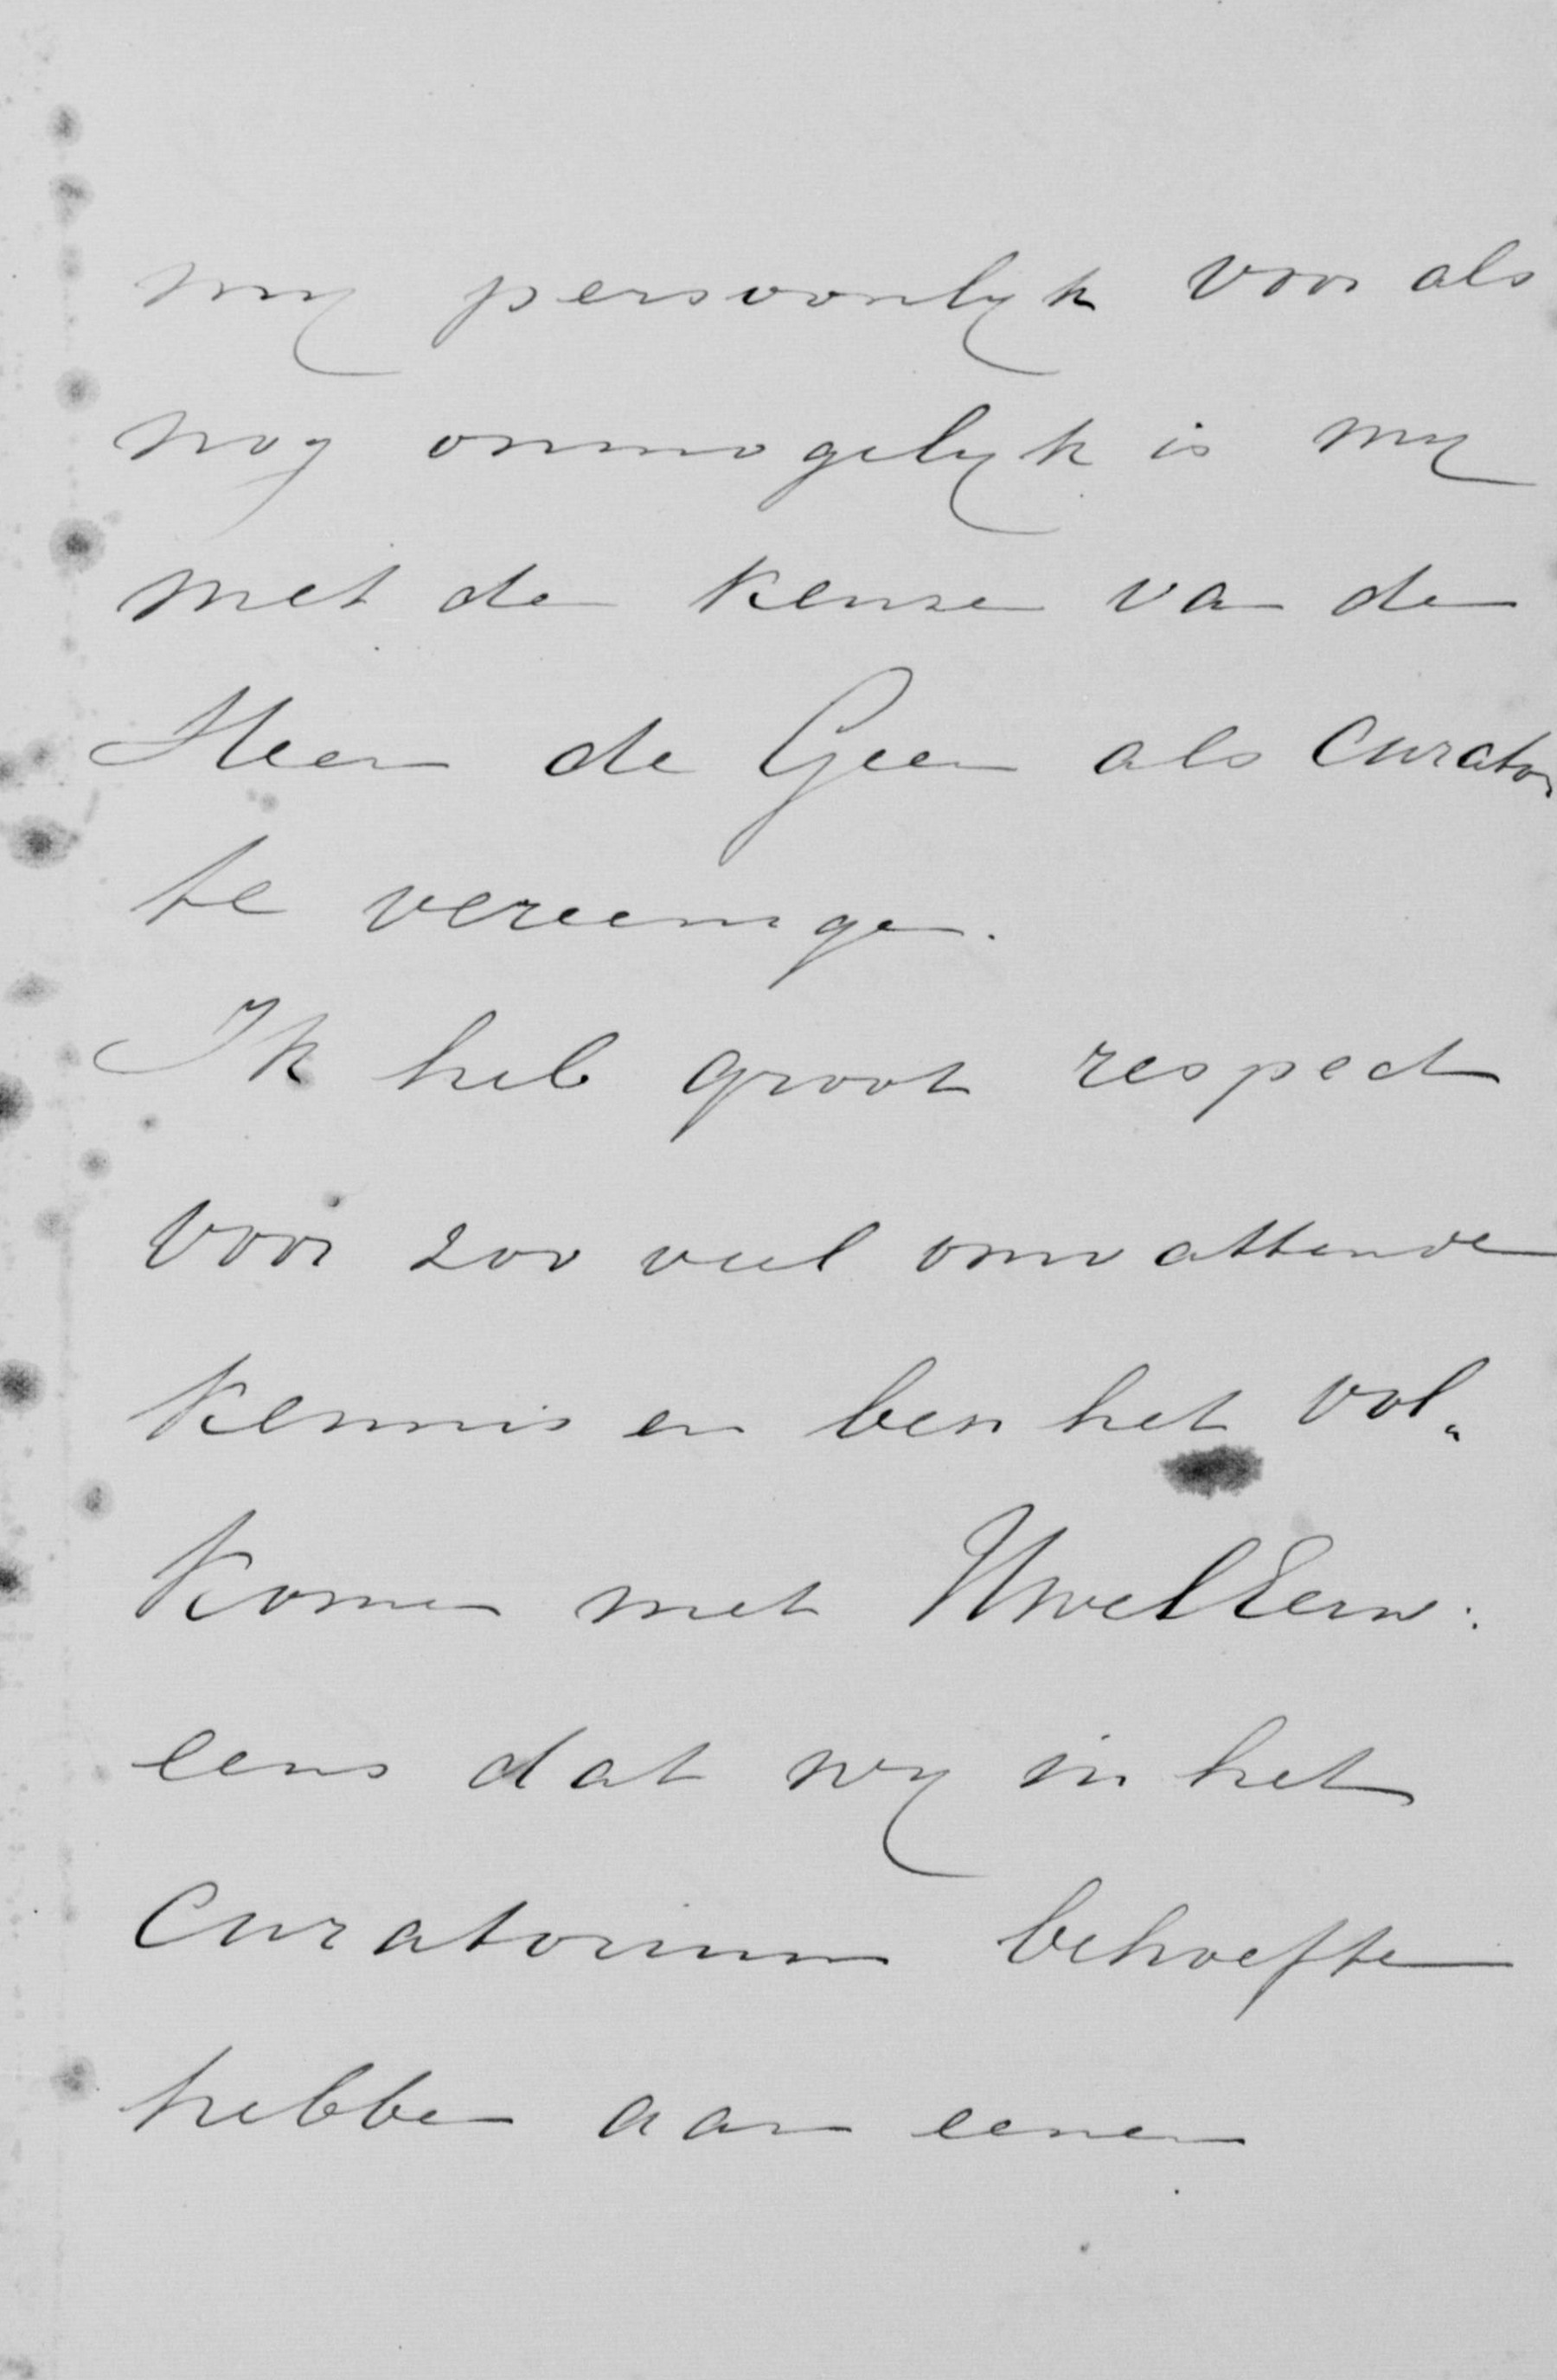 my persoonlyk voor als
nog onmogelyk is my
met de keuze van den
Heer de Geer als Curator
te vereenigen.
Ik heb groot respect
voor zoo veel omvattende
kennis en ben het vol„
komen met UwelEerw:
eens dat wy in het
Curatorium behoefte
hebben aan eenen